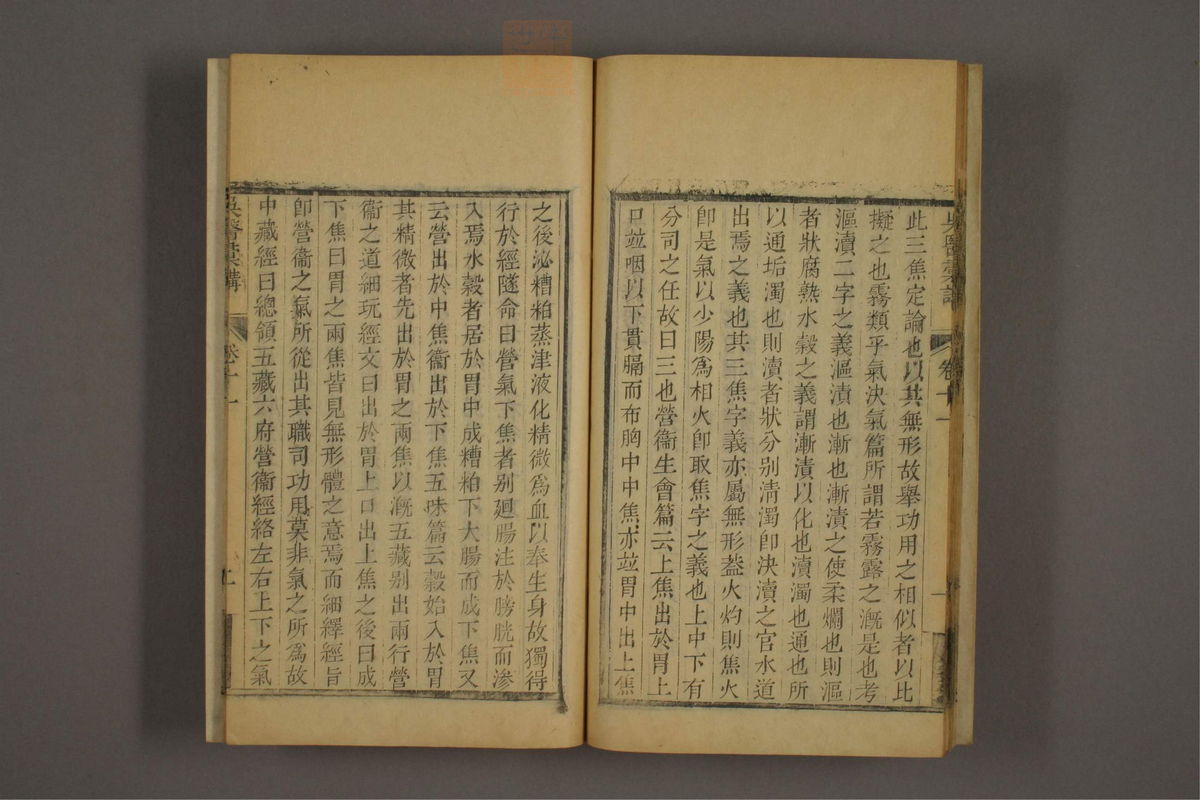 此三焦定論也以其無形故舉功用之相似者以比
擬之也霧類乎氣決氣篇所謂若霧露之漑是也考
漚瀆二字之義漚漬也漸也漸漬之使柔爛也則漚
者狀腐熟水穀之義謂漸漬以化也瀆濁也通也所
以通垢濁也則瀆者狀分别清濁卽決瀆之官水道
出焉之義也其三焦字義亦屬無形葢火灼則焦火
卽是氣以少陽爲相火卽取焦字之義也上中下有
分司之任故曰三也營衞生會篇云上焦出於胃上
口竝咽以下貫膈而布胸中中焦亦竝胃中出上焦
吳醫彙講
卷十一
之後泌糟粕蒸津液化精微爲血以奉生身故獨得
行於經隧命曰營氣下焦者别廻腸注於膀胱而滲
入焉水穀者居於胃中成糟粕下大腸而成下焦又
云營出於中焦衞出於下焦五味篇云穀始入於胃
其精微者先出於胃之兩焦以漑五藏别出兩行營
衞之道細玩經文曰出於胃上口出上焦之後曰成
下焦曰胃之兩焦皆見無形體之意焉而細繹經旨
卽營衞之氣所從出其職司功用莫非氣之所爲故
中藏經曰總領五藏六府營衞經絡左右上下之氣
吳醫彙講
卷十一